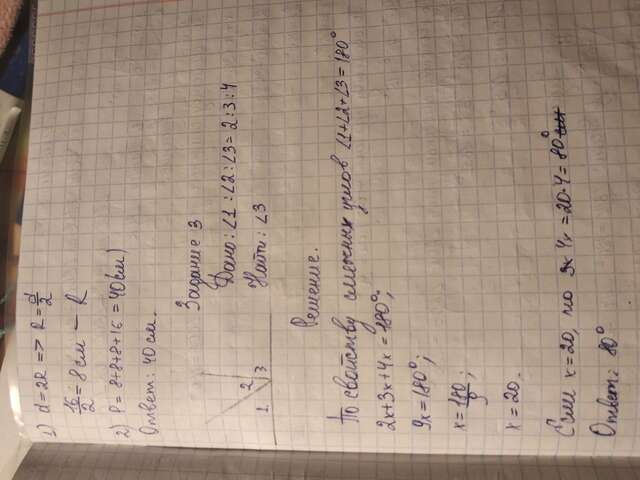 1) d = 2R => R = d/2
16/2 = 8 см — R
2) P = 8+8+8+16 = 40(см)
Ответ: 40 см.
Задание 3
Дано: ∠1 : ∠2 : ∠3 = 2 : 3 : 4
Найти: ∠3
1 2 3
Решение.
По свойству смежных углов ∠1+∠2+∠3 = 180°
2x+3x+4x = 180°;
9x = 180°;
x = 180/9;
x = 20.
Если x = 20, то 4x = 20·4 = 80°
Ответ: 80°